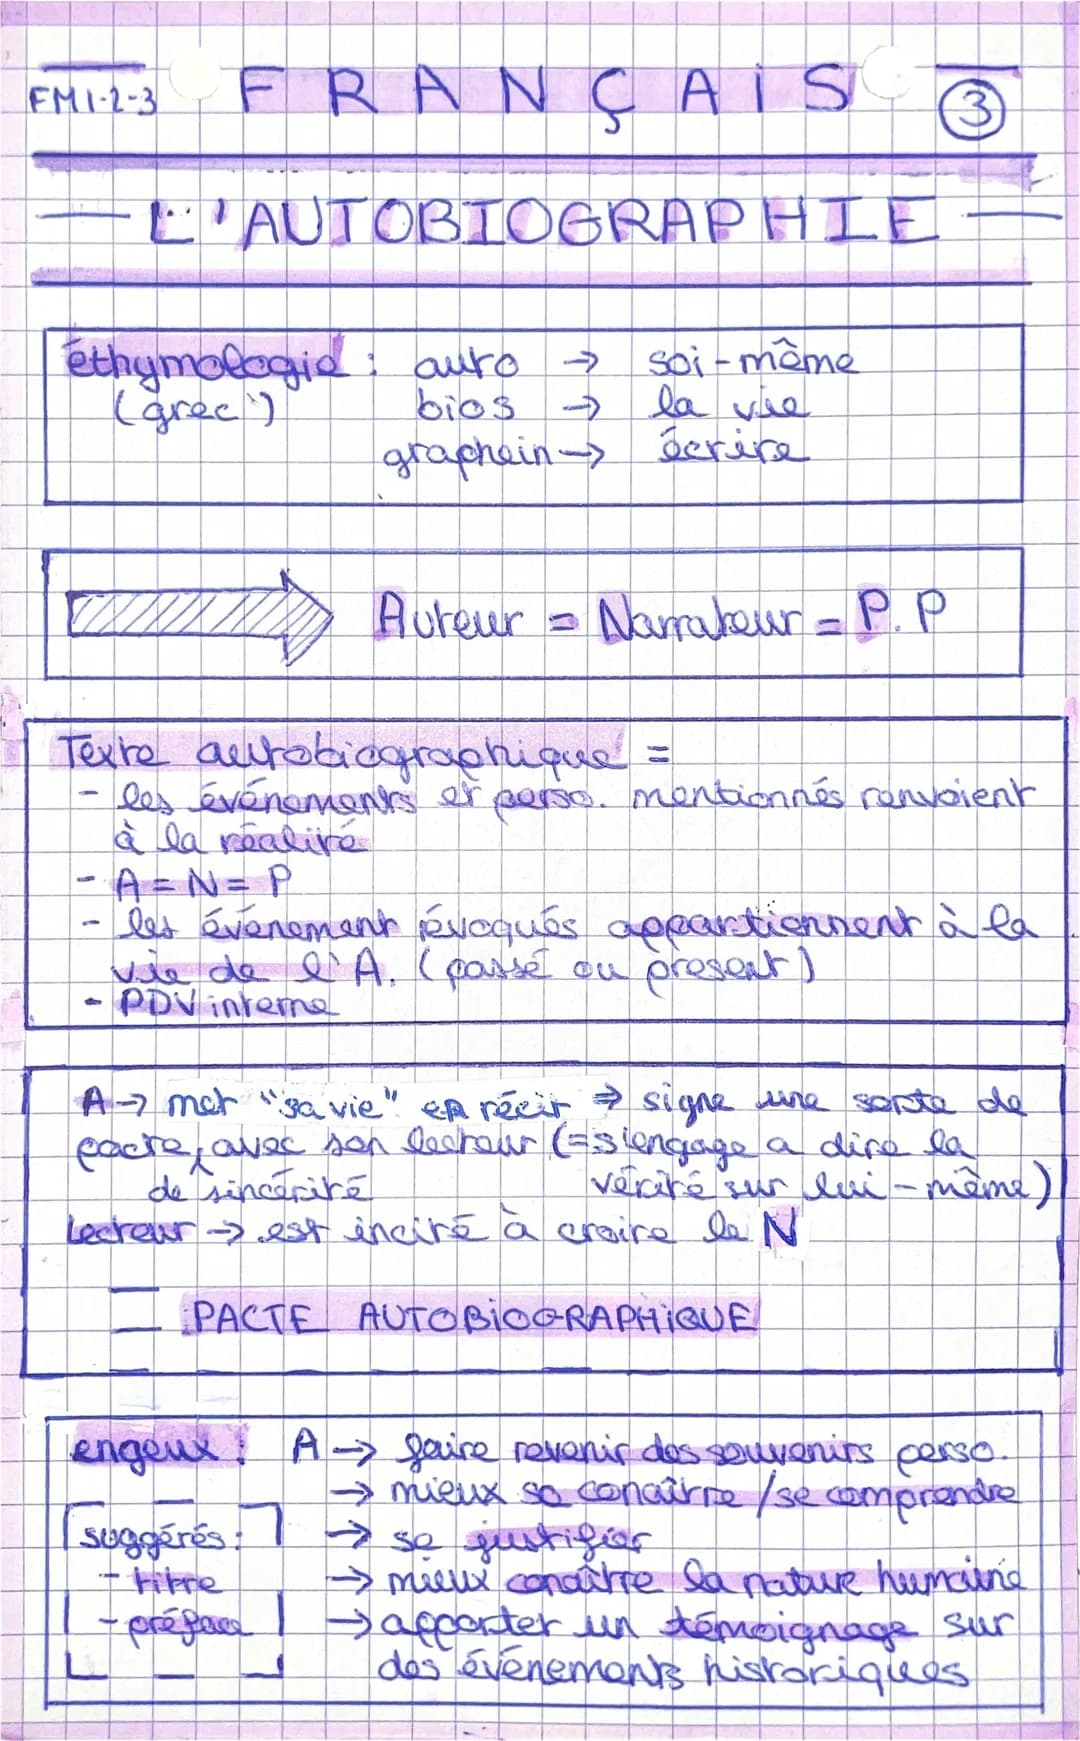 FM1-2-3 FRANÇAiS 3
L'AUTOBIOGRAPHIE
éthymologie : auto → soi-même
(grec) bios → la vie
graphein → écrire
Auteur = Narrateur = P.P
Texte autobiographique =
- les événements et perso. mentionnés renvoient
à la réalité
- A = N = P
- les événement évoqués appartiennent à la
vie de l'A. (passé ou présent)
- PDV interne
A → met "sa vie" en récit ⇒ signe une sorte de
pacte, avec son lecteur (= s'engage a dire la
de sincérité vérité sur lui-même)
Lecteur → est incité à croire le N
= PACTE AUTOBiOGRAPHiQUE
engeux : A → faire revenir des souvenirs perso.
→ mieux se conaître /se comprendre
suggérés : → se justifier
- titre → mieux conaître la nature humaine
- préface → apporter un témoignage sur
des événements historiques